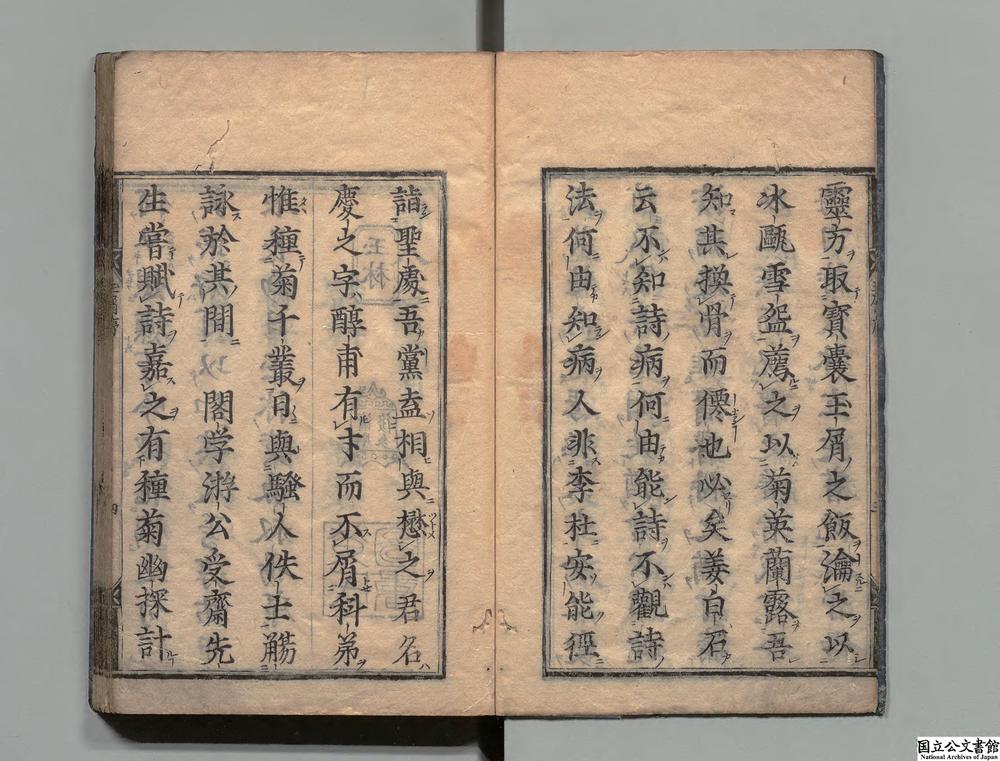 靈方取寶囊玉屑之飯瀹之以
冰甌雪盌薦之以菊英蘭露吾
知其換骨而僊也必矣姜白石
云不知詩病何由能詩不觀詩
法何由知病人非李杜安能徑
詣聖處吾黨盍相與懋之君名
慶之字醇甫有才而不屑科第
惟種菊千叢日與騷人佚士觴
詠於其間閣学游公受齋先
生嘗賦詩嘉之有種菊幽探計
玉林
国立公文書館
National Archives of Japan